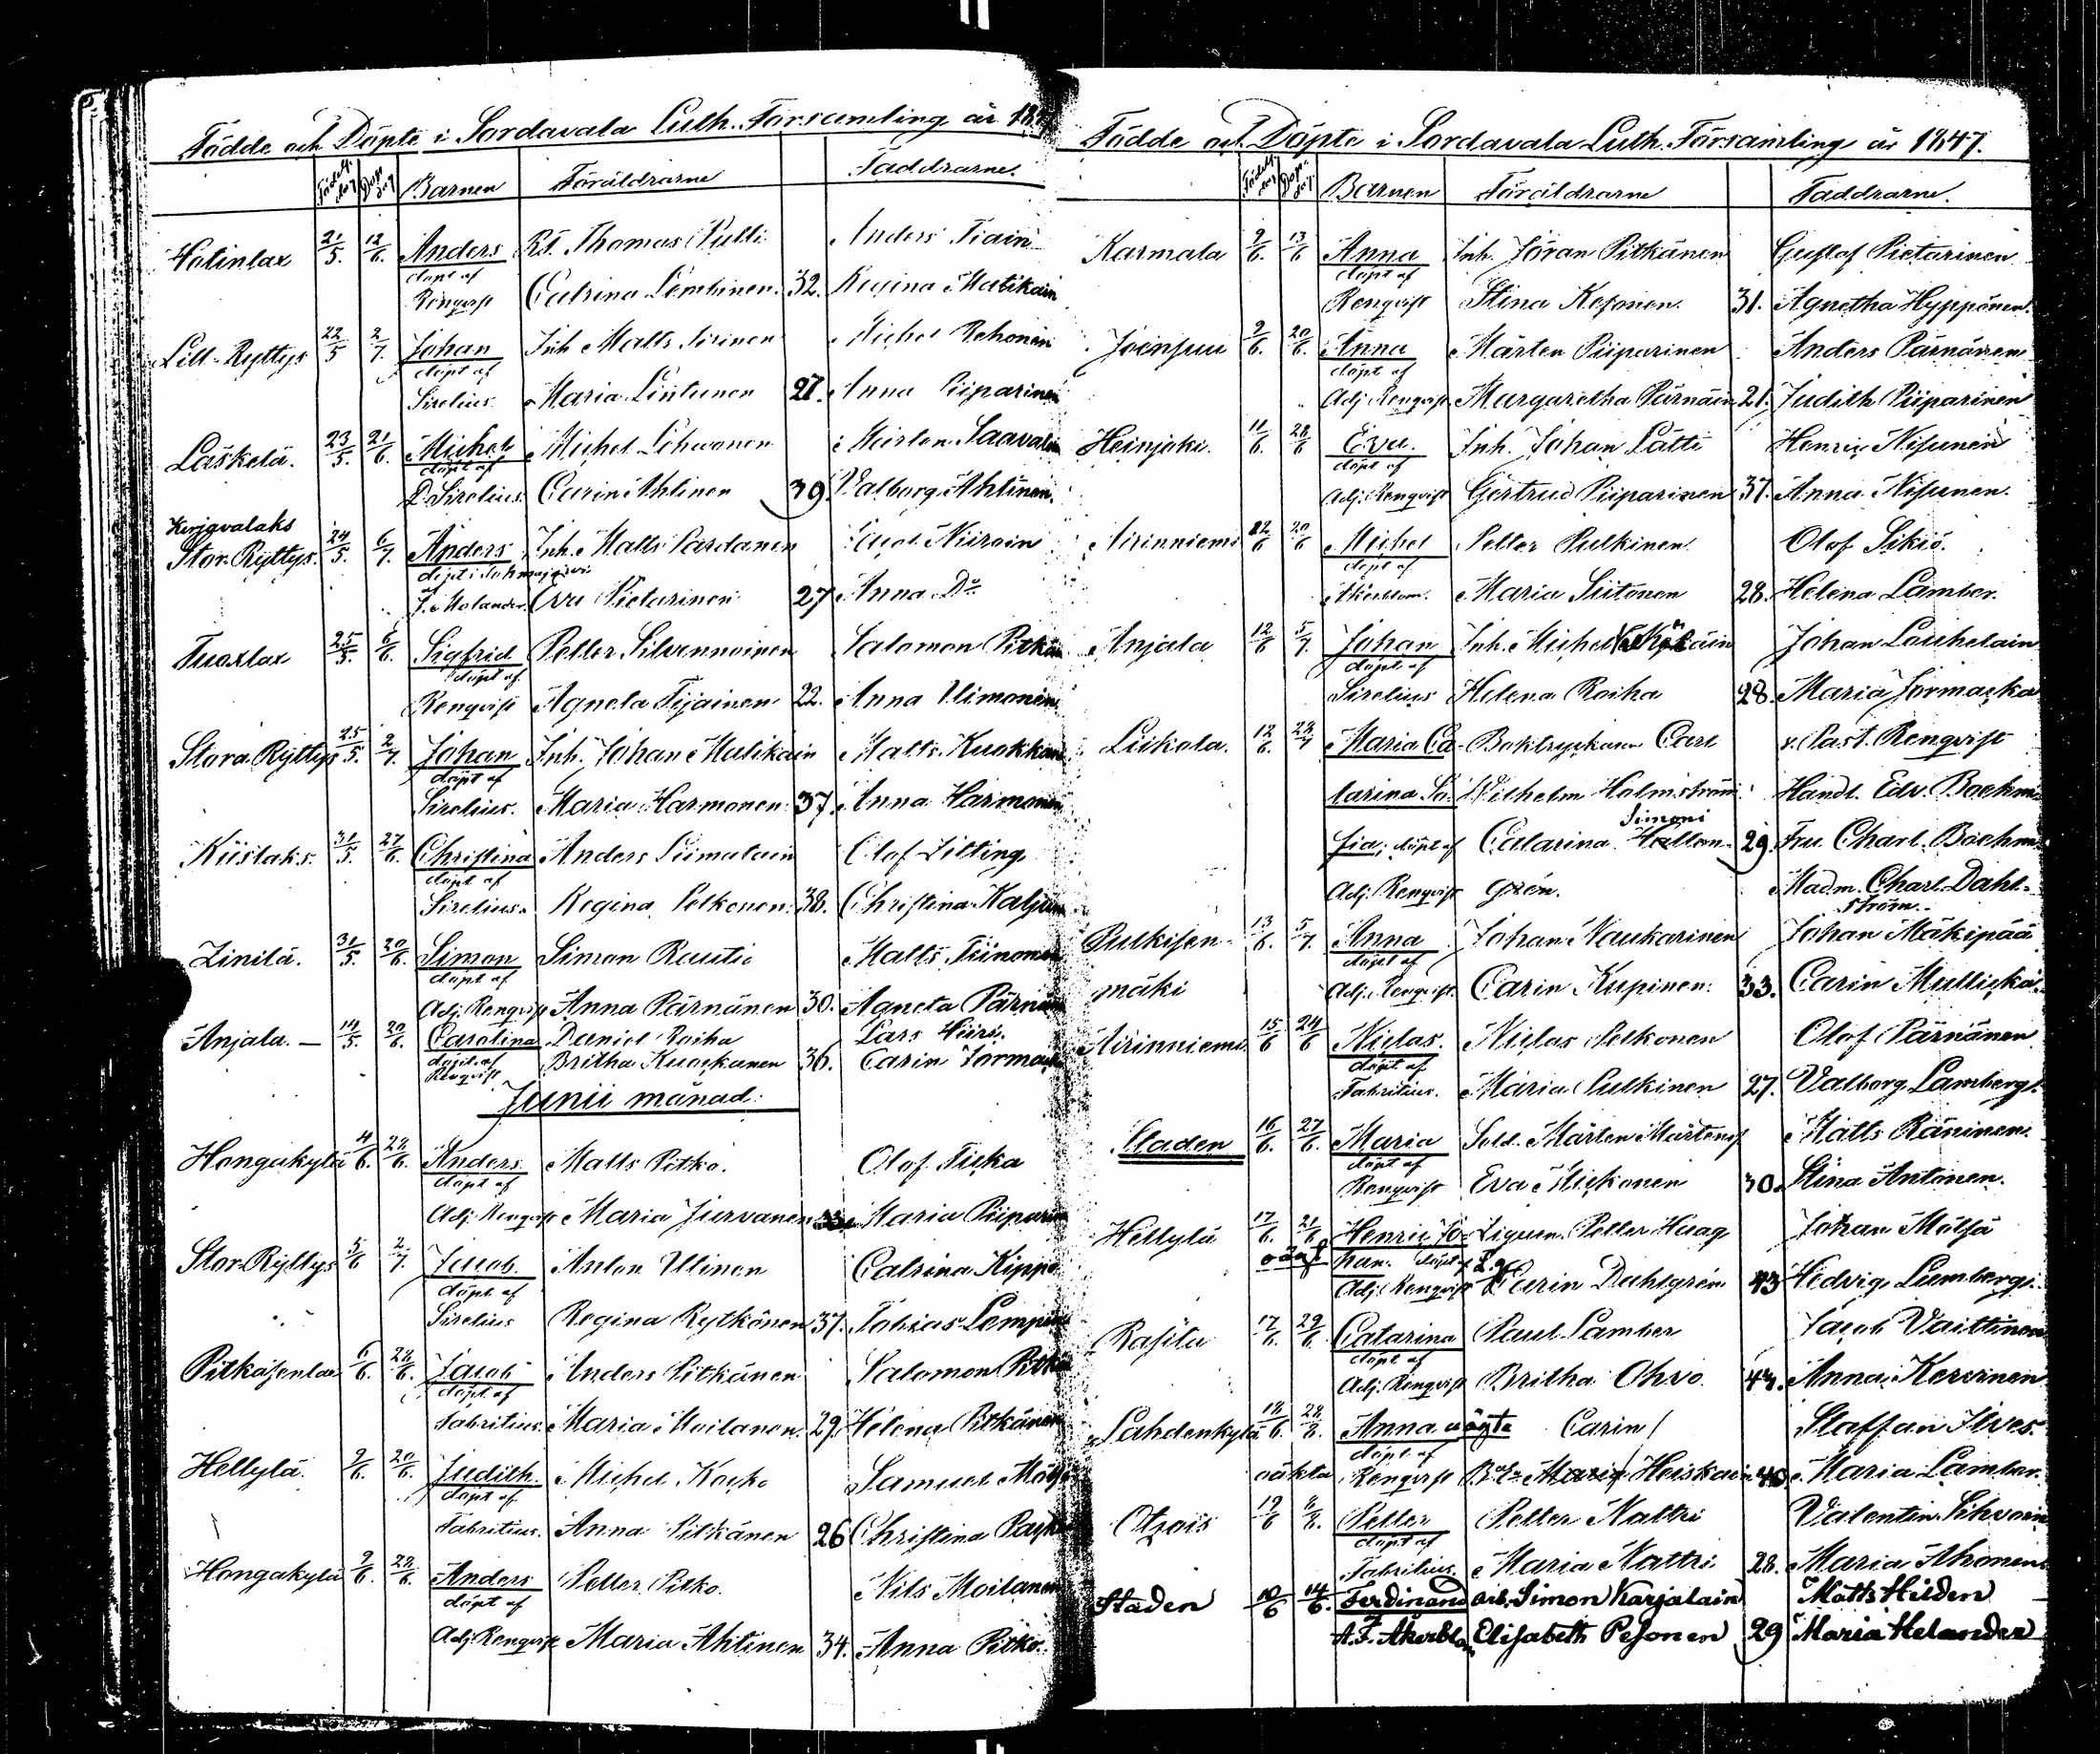 Födde och Döpte i Sordavala Luth. Församling år 1847
Födelse dag Dop dag Barnen Föräldrarne Faddrarne.
Holinlax 21/5. 12/6. Anders Rt. Thomas Putti Anders Tiain
döpt af
Renqvist Catrina Lembinen. 32. Regina Matikain
Lill-Ryttys 22/5 2/7. Johan Inh Matts Sirinen Michel Rehonen
döpt af
Sirelius. Maria Lintunen 27. Anna Piiparinen
Läskelä. 23/5. 21/6. Michel Michel Lehvonen Mårten Saavalain
döpt af
D. Sirelius. Carin Ahtinen 39. Valborg Ahtinen.
Kerigvalaks
Stor-Ryttys. 24/5. 6/7. Anders Inh. Matts Pardanen Niirain
döpt i Tohmajärvi
J. Molander. Eva Pietarinen 27 Anna Do
Tuoxlax 25/5. 6/6. Sigfrid Petter Silvennoinen Salomon Pitkän
döpt af
Renqvist Agneta Tijainen 22. Anna Uimonen
Stora Ryttys 25/5. 2/7. Johan Inh. Johan Matikain Matts Kuokkan
döpt af
Sirelius. Maria Harmonen 37. Anna Harmonen
Kiislaks. 31/5. 27/6. Christina Anders Siimatain Olof Zitting
döpt af
Sirelius. Regina Pelkonen. 38. Christina Kaljun
Zinilä. 31/5. 20/6. Simon Simon Rautio Matts Tiinonen
döpt af
Adj. Renqvist Anna Pärnänen 30. Agneta Pärnän
Anjala. — 14/5. 20/6. Carolina Daniel Roiha Lars Hiirs.
döpt af
Renqvist Britha Kuockanen 36. Carin Jormack
Junii månad:
Hongakylä 4/6. 24/6. Anders Matts Pitko. Olof Ticka
döpt af
Adj. Renqvist Maria Jurvanen 33. Maria Piiparin
Stor-Ryttys 5/6 2/7. Jacob. Anton Ullinen Catrina Kippo
döpt af
Sirelius Regina Rytkönen 37. Tobias Lempin
Pitkäsenlax 6/6. 24/6. Jacob Anders Pitkänen Salomon Pitkä
döpt af
Fabritius. Maria Moilanen. 29. Helena Pitkänen
Hellylä. 9/6. 20/6. Judith. Michel Koško Samuel Mäljä
döpt af
Fabritius. Anna Pitkänen 26 Christina
Hongakylä 9/6. 24/6. Anders Petter Pitko. Nils Moilanen
döpt af
Adj. Renqvist Maria Ahtinen 34. Anna Pitko.
Födde och Döpte i Sordavala Luth. Församling år 1847.
Födelse dag Dop dag Barnen Föräldrarne Faddrarne.
Karmala 9/6. 13/6 Anna Inh. Jöran Pitkänen Gustaf Pietarinen
döpt af
Renqvist Stina Kesonen. 31. Agnetha Hyppönen.
Joensuu 9/6. 20/6. Anna Mårten Piiparinen Anders Pärnänen
döpt af
Adj. Renqvist Margaretha Pärnäin 21. Judith Piiparinen
Heinjoki. 11/6. 24/6 Eva. Inh. Johan Lätti Henric Nisunen
döpt af
Adj. Renqvist Gertrud Piiparinen 37. Anna Nisunen.
Nirinniemi 12/6 20/6 Michel Petter Pulkinen Olof Sikiö.
döpt af
Åkerblom. Maria Siitonen 28. Helena Lamber.
Anjala 12/6 5/7. Johan Inh. Michel Johan Louhelain
döpt af
Sirelius Helena Roiha 28. Maria Jormacka
Liikola. 12/6. 24/7 Maria Ca- Boktryckaren Carl v. Past. Renqvist
tarina So- Wilhelm Holmström Handl. Edv. Boehm
Simoni
fia; döpt af Catarina Hallon- 29. Fru Charl. Boehm
Adj. Renqvist grén. Madm. Charl. Dahl-
ström.
Pulkisen- 13/6. 5/7. Anna Johan Naukarinen Johan Mäkipää
döpt af
mäki Adj. Renqvist Carin Kupinen. 33. Carin Mullicka.
Nirinniemi 15/6 24/6 Niclas. Niclas Pelkonen Olof Pärnänen
döpt af
Fabritius. Maria Pulkinen 27. Valborg Lamberg.
Staden 16/6. 27/6. Maria Sold. Mårten Mårtens Matts Räninen.
döpt af
Renqvist Eva Mickonen 30. Stina Antonen.
Hellylä 17/6. 21/6 Henric Jo- Ziguen. Petter Haag Johan Mäljä
oägt han. döpt af Z.q.
Adj. Renqvist Carin Dahlgren 43 Hedvig Lamberg.
Rasila 17/6. 29/6. Catarina Paul Lamber Jacob Vaittinen
döpt af
Adj. Renqvist Britha Ohvo. 44. Anna Kervinen
Lahdenkylä 18/6. 28/6. Anna oägta Carin / Staffan Ilves.
döpt af
oäkta Renqvist Maria Heiskain 40. Maria Lamber.
Otsois 19/6 Petter Petter Nattri Valentin Sihvoin
döpt af
Fabritius. Maria Nattri 28. Maria Ahonen
Staden 10/6 14/6. Ferdinand arb. Simon Karjalain Matts Hilden
A. F. Åkerblom Elisabeth Pesonen 29 Maria Helander